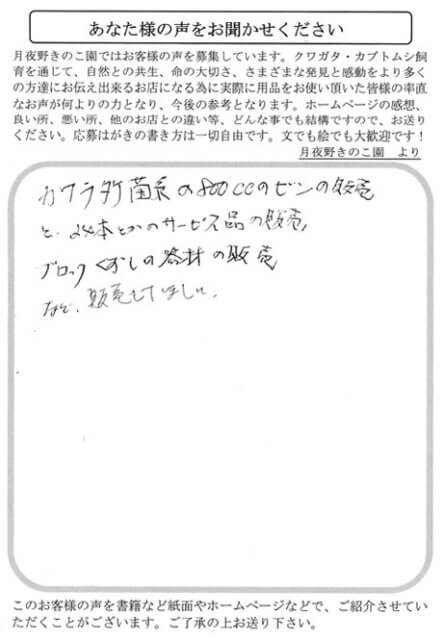 あなた様の声をお聞かせください
月夜野きのこ園ではお客様の声を募集しています。クワガタ・カブトムシ飼
育を通じて、自然との共生、命の大切さ、さまざまな発見と感動をより多く
の方達にお伝え出来るお店になる為に実際に用品をお使い頂いた皆様の率直
なお声が何よりの力となり、今後の参考となります。ホームページの感想、
良い所、悪い所、他のお店との違い等、どんな事でも結構ですので、お送り
ください。応募はがきの書き方は一切自由です。文でも絵でも大歓迎です！
月夜野きのこ園　より
カワラタケ菌系の800ccのビンの販売
と、24本とかのサービス品の販売、
ブロックくずしの器材の販売
など、販売してほしい。
このお客様の声を書籍など紙面やホームページなどで、ご紹介させてい
ただくことがございます。ご了承の上お送り下さい。